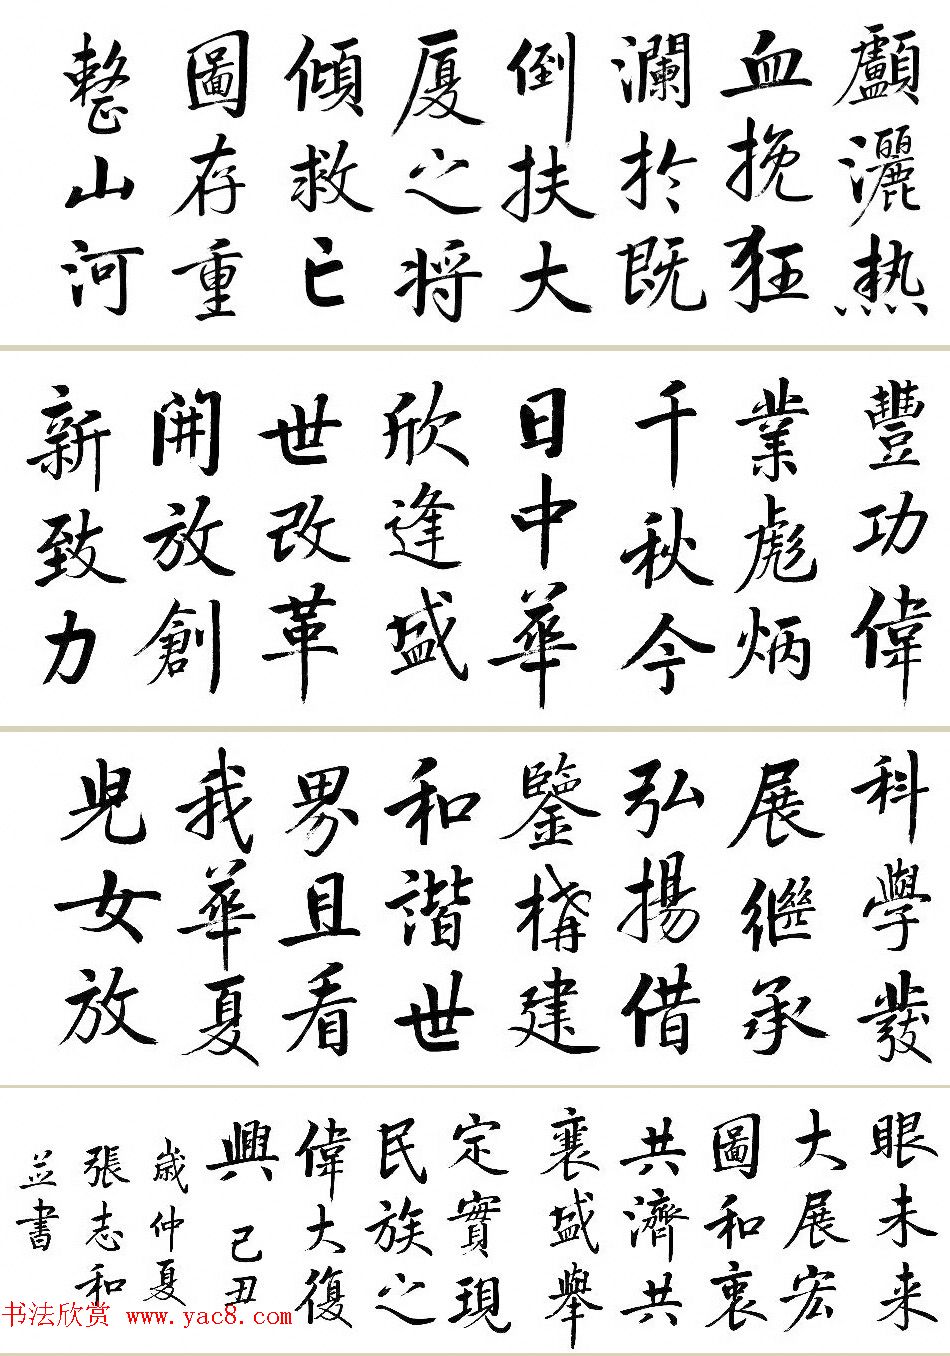 顱灑熱
血挽狂
瀾於既
倒扶大
厦之將
傾救亡
圖存重
整山河
豐功偉
業彪炳
千秋今
日中華
欣逢盛
世改革
開放創
新致力
科學發
展繼承
弘揚借
鑒構建
和諧世
界且看
我華夏
兒女放
眼未来
大展宏
圖和衷
共濟共
襄盛舉
定實現
民族之
偉大復
興 己丑
歲仲夏
張志和
並書
书法欣赏 www.yac8.com